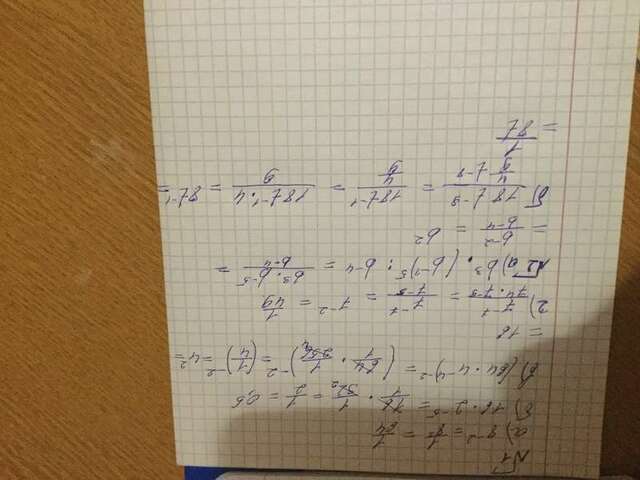 √1
а) 8^-2 = 1/8² = 1/64
б) 16 · 2^-5 = 16/1 · 1/32 = 1/2 = 0,5
в) (64 · 4^-4)^-2 = (64/1 · 1/256)^-2 = (1/4)^-2 = 4² =
= 16
2) 7^-7 / 7^4 · 7^-9 = 7^-7 / 7^-5 = 7^-2 = 1/49
√2 а) b³ · (b^-1)^5 : b^-4 = b³ · b^-5 / b^-4 =
= b^-2 / b^-4 = b²
б) 18 t^-9 / 4/9 t^-8 = 18t^-1 / 4/9 = 18t^-1 · 4 / 9 = 8t^-1 =
= 1/8t